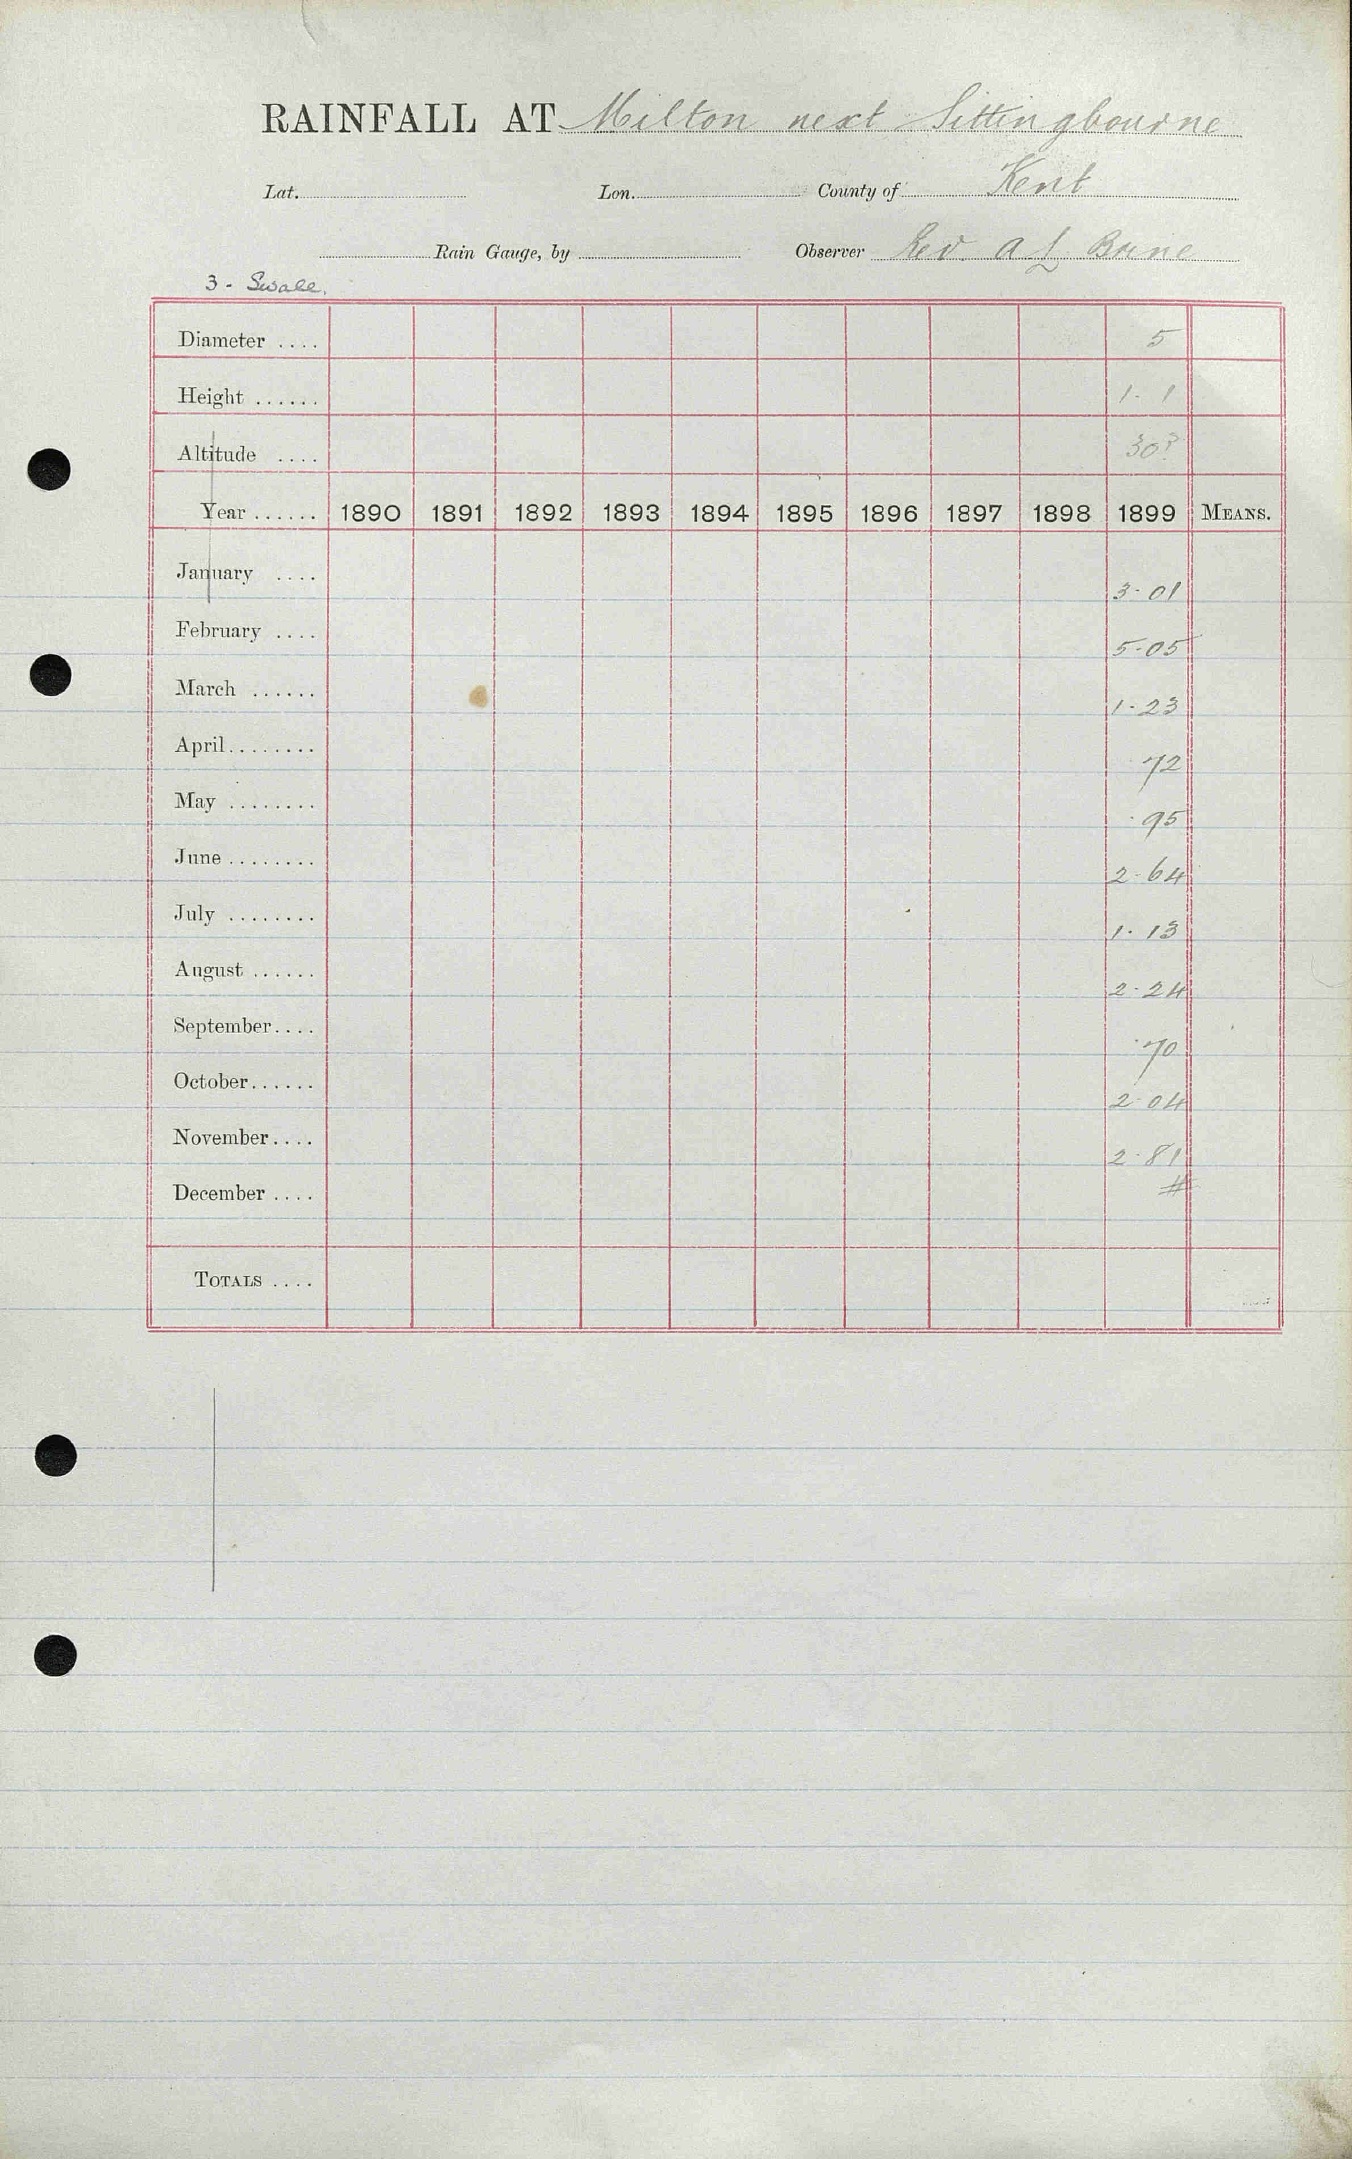 RAINFALL AT Milton next Sittingbourne
Lat. Lon. County of Kent
Rain Gauge, by Observer Rev. A L
3 - Swale.
Diameter .... 5
Height ...... 1 - 1
Altitude .... 30?
Year ...... 1890 1891 1892 1893 1894 1895 1896 1897 1898 1899 MEANS.
January .... 3·01
February .... 5·05
March ...... 1·23
April........ 72
May ........ ·95
June ........ 2·64
July ........ 1·13
August ...... 2·24
September.... ·70
October...... 2·04
November.... 2·81
December .... #
TOTALS ....